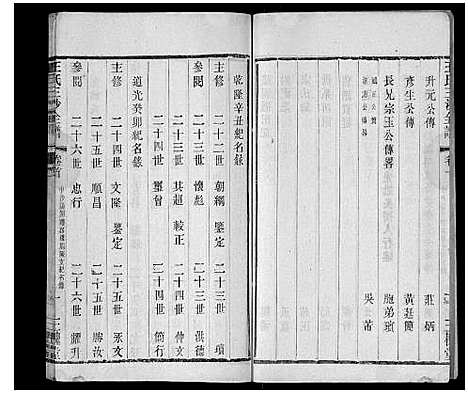 升元公傳 莊炳
彥生公傳 黃廷簡
長兄宗玉公傳畧 胞弟瓚
吳芾
乾隆辛丑紀名錄
主修 二十二世 朝綱 鑒定 二十三世 瓚
參閱 二十三世 懷彪 二十三世 洪德
二十四世 其超 較正 二十四世 仲文
二十四世 聖曾 二十四世 簡行
道光癸卯紀名錄
主修 二十四世 文隆 鑒定 二十五世 永文
二十五世 順昌 二十五世 勝汝
參閱 二十六世 忠行 二十六世 耀升
王氏三沙全譜 卷首 三槐堂